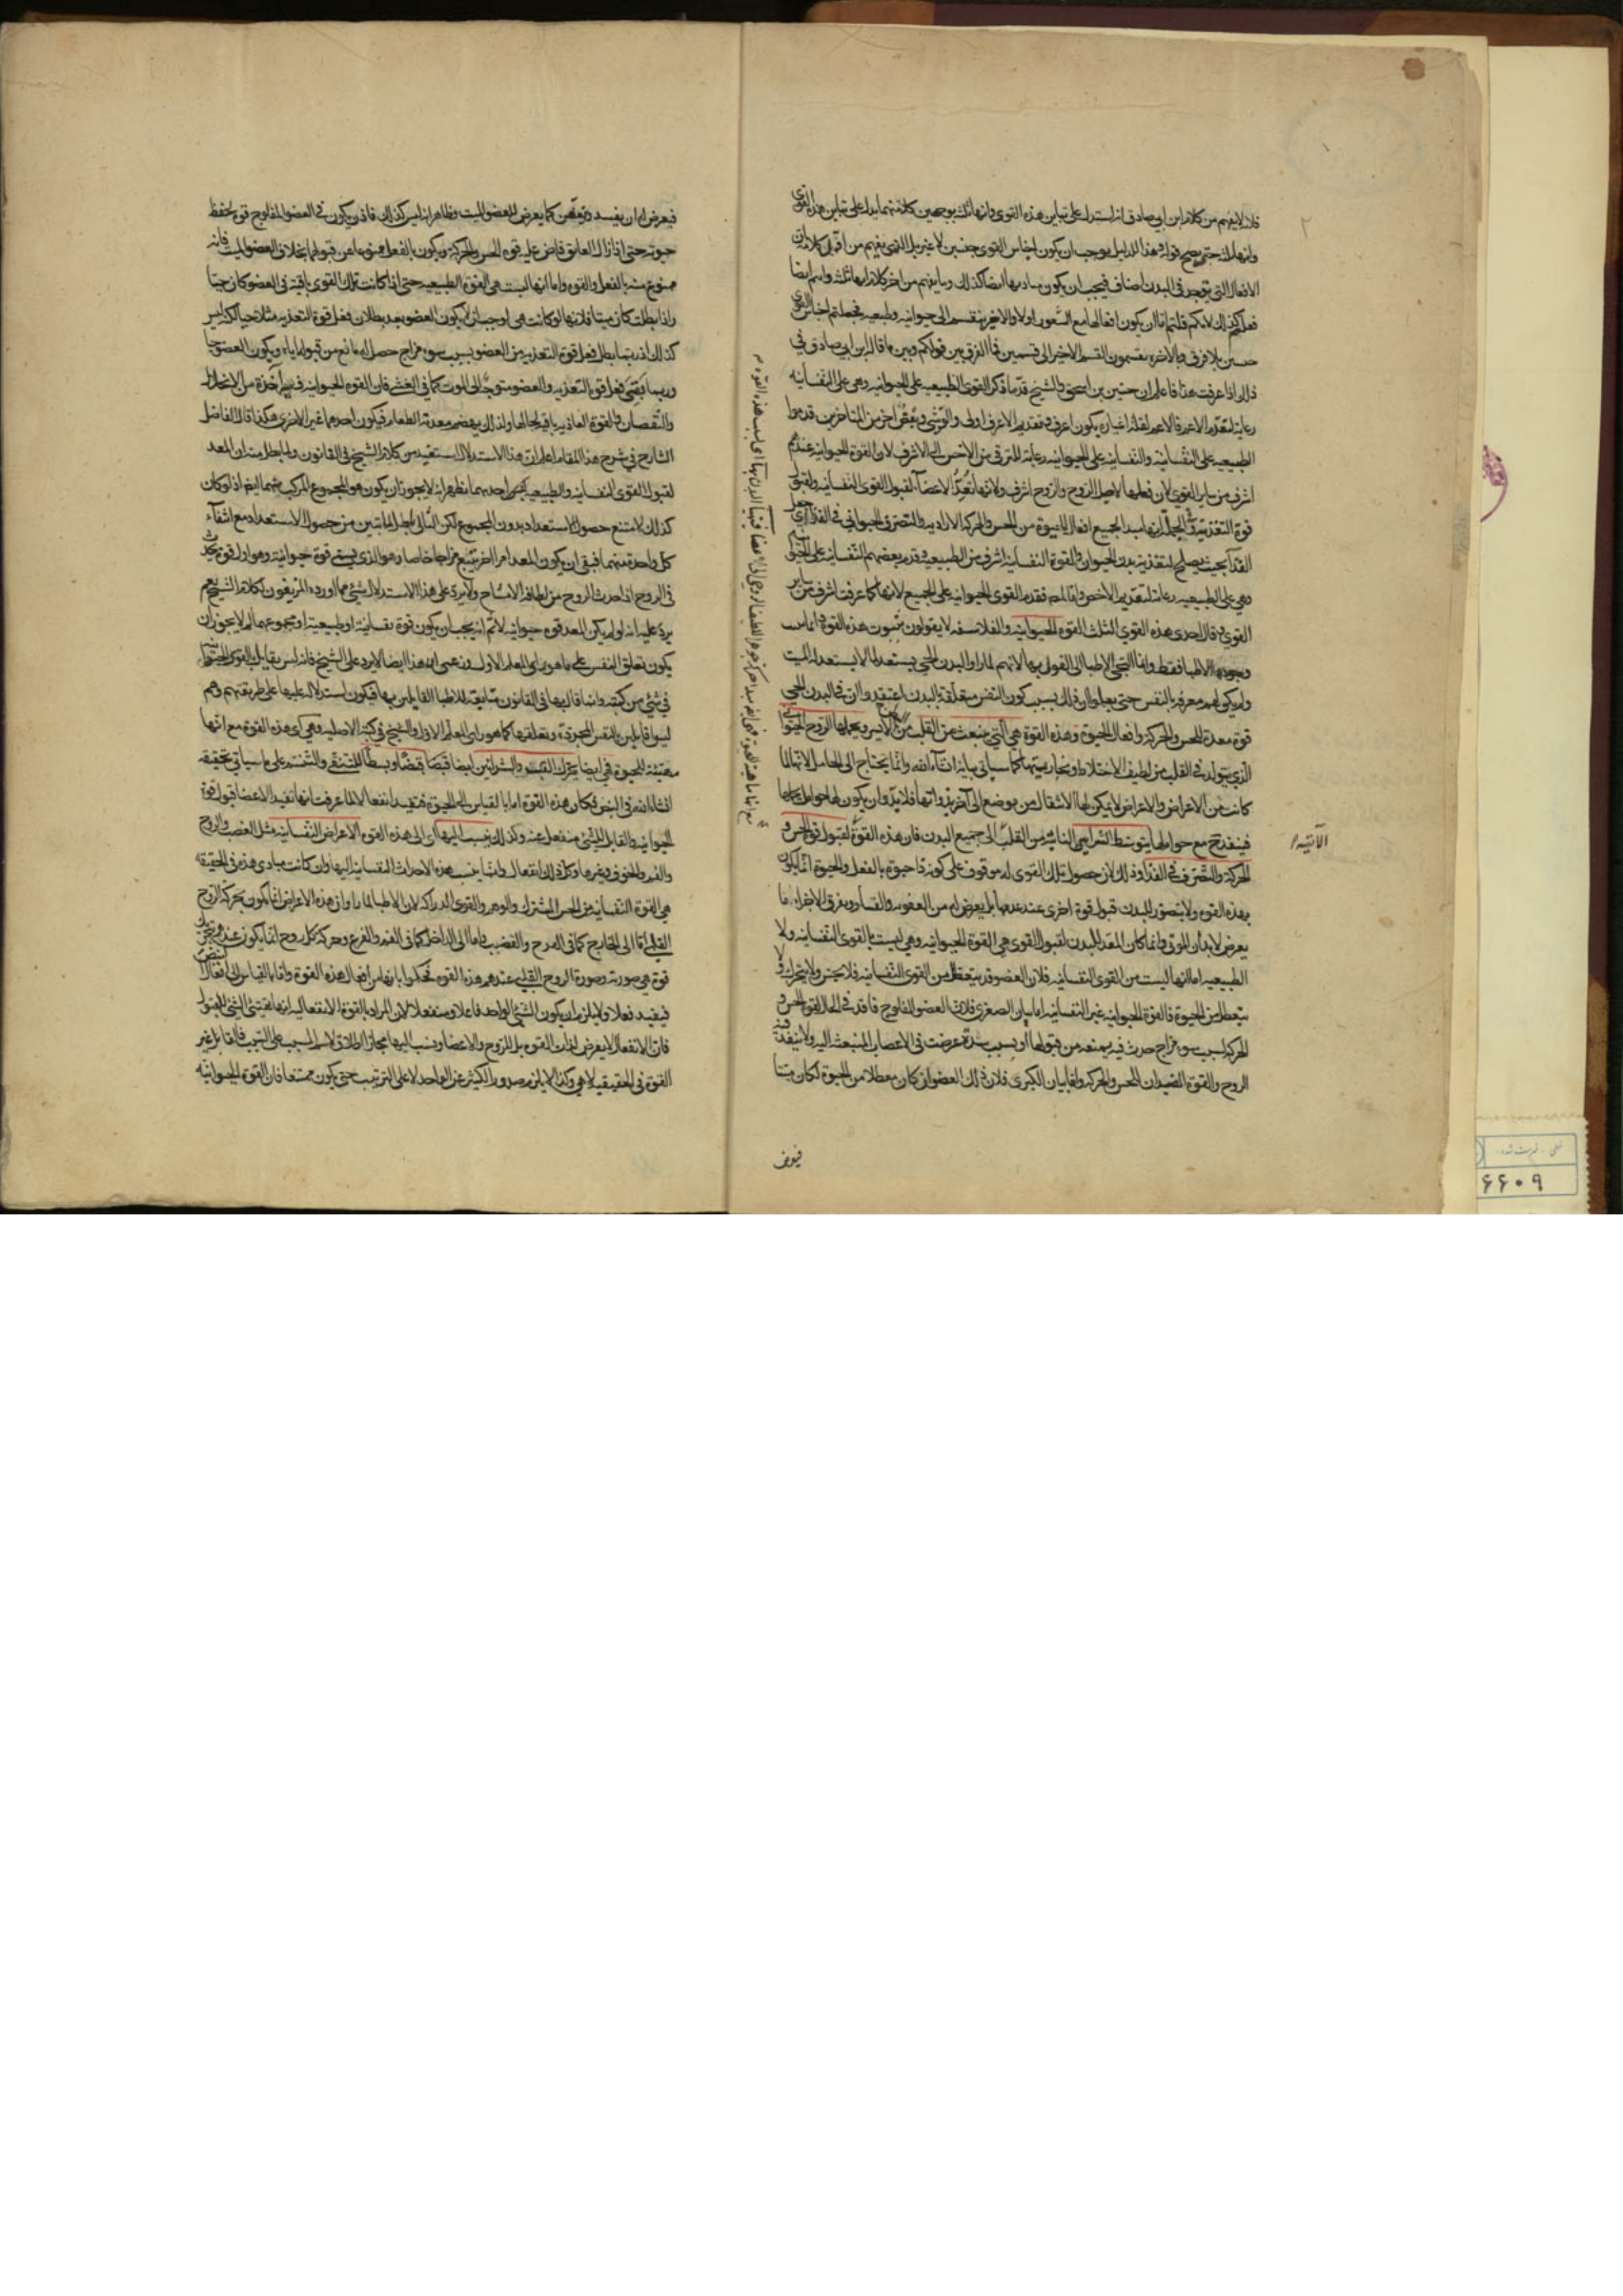 فلانه لا يفهم من كلام ابن ابي صادق انه استدل على تباين هذه القوى وانها ثلث بوجهين كلا منهما يدل على تباين هذه القوى
وانها ثلث حتى يصح قوله وهذا الدليل يوجب ان يكون اجناس القوى جنسين لا غير بل الذي يفهم من اول كلامه ان
الافعال التي توجد في البدن اصناف فيجب ان يكون مباديها ايضا كذلك وما يفهم من اخر كلامه انها ثلثة وانتم ايضا
فعلتم كذلك لانكم قلتم اما ان يكون افعالها مع الشعور اولا والاخير ينقسم الى حيوانيه وطبيعيه فجعلتم اجناس القوى
جنسين بلا فرق وبالاخره تقسمون القسم الاخير الى قسمين فما الفرق بين قولكم وبين ما قال ابن ابي صادق في
ذلك اذا عرفت هذا فاعلم ان حنين بن اسحق والشيخ قدما ذكر القوى الطبيعيه على الحيوانيه وهي على النفسانيه
رعاية لتقديم الاعم فالاعم لقلة اغياره يكون اعرف وتقديم الاعرف اولى والقرشي وبعض اخر من المتاخرين قدموا
الطبيعيه على النفسانيه والنفسانيه على الحيوانيه رعاية للترقي من الاخس الى الاشرف لان القوة الحيوانيه عندهم
اشرف من ساير القوى لان فعلها لاجل الروح والروح اشرف ولانها تعد الاعضاء لقبول القوى النفسانيه ولقبول
قوة التغذية وفي الجملة انها مبدا لجميع افعال الحيوة من الحس والحركة الاراديه والتصرف الحيواني في الغذا اي جعل
الغذا بحيث يصلح لتغذية بدن الحيوان والقوة النفسانيه اشرف من الطبيعيه وقدم بعضهم النفسانيه على الحيوانيه
وهي على الطبيعيه رعاية لتقديم الاخص واما المص فقدم القوى الحيوانيه على الجميع لانها كما عرفت اشرف من ساير
القوى وقال احدى هذه القوى الثلث القوه الحيوانيه والفلاسفه لا يقولون بثبوت هذه القوة وانما
وجودها الاطبا فقط وانما التجي الاطبا الى القول بها لانهم لما راوا البدن الحي يستعد لما لا يستعد له الميت
ولم يكن لهم معرفة بالنفس حتى يعلموا ان ذلك بسبب كون النفس متعلقة بالبدن اعتقدوا ان في البدن الحي
قوة معدة للحس والحركة وافعال الحيوة وهذه القوة هي التي تنبعث من القلب من الايسر ويحملها الروح الحيواني
الذي يتولد في القلب من لطيف الاخلاط وبخاريتها كما سياتي بيانه انشاء الله وانما يحتاج الى الحامل لانها لما
كانت من الاعراض والاعراض لا يمكن لها الانتقال من موضع الى آخر بذواتها فلا بد وان يكون لها حوامل
فينفذ مع حواملها بتوسط الشرايين النابتة من القلب الى جميع البدن فان هذه القوة لقبول قوة الحس و
الحركة والتصرف في الغذا وذلك لان حصول تلك القوى له موقوف على كونه ذا حيوة بالفعل والحيوة انما يكون
بهذه القوه ولا يتصور للبدن قبول قوة اخرى عند عدمها بل يعرض له من العفونه والفساد وتفرق الاجزاء ما
يعرض لابدان الموتى وانما كان المعد للبدن لقبول القوى هي القوة الحيوانيه وهي ليست بالقوى النفسانيه ولا
الطبيعيه اما انها ليست من القوى النفسانيه فلان العضو قد يتعطل من القوى النفسانيه فلا يحس ولا يتحرك ولا
يتعطل من الحيوة فالقوة الحيوانيه غير النفسانيه اما بيان الصغرى فلان العضو المفلوج فاقد في الحال لقوة الحس و
الحركة بسبب سوء مزاج حدث فيه يمنعه من قبولها او بسبب سدة عرضت في الاعصاب المنبعثة اليه ولا ينفذ فيه
الروح والقوة المفيدان للحس والحركة واما بيان الكبرى فلان ذلك العضو لو كان معطلا من الحيوة لكان ميتا
فيعرض
الآتية
فيعرض له ان يفسد ويتعفن كما يعرض للعضو الميت وظاهر انه ليس كذلك فاذن يكون في العضو المفلوج قوة تحفظ
حيوته حتى اذا زال العايق فاض عليه قوه الحس والحركة ويكون بالفعل ممنوعا عن قبولها بخلاف العضو الميت فانه
ممنوع منه بالفعل والقوه واما انها ليست هي القوة الطبيعيه حتى اذا كانت تلك القوى باقية في العضو كان حيا
واذا بطلت كان ميتا فلانها لو كانت هي لوجب ان لا يكون العضو بعد بطلان فعل قوة التغذيه مثلا حيا لكنه ليس
كذلك اذ ربما بطل فعل قوة التغذيه من العضو بسبب سوء مزاج حصل له مانع من قبوله اياه ويكون العضو حيا
وربما بقي فعل قوة التغذيه والعضو متوجه الى الموت كما في الغشي فان القوه الحيوانيه فيه آخذة من الانحلال
والنقصان والقوة الغاذيه باقيه بحالها ولذلك يهضم معدته الطعام فيكون احدهما غير الاخرى هكذا قال الفاضل
الشارح في شرح هذا المقام اعلم ان هذا الاستدلال استفيد من كلام الشيخ في القانون ولما بطل منه ان المعد
لقبول القوى النفسانيه والطبيعيه ليس احدهما ظهر انه لا يجوز ان يكون هو المجموع المركب منهما ايضا اذ لو كان
كذلك لامتنع حصول الاستعداد بدون المجموع لكن التالي باطل لما تبين من حصول الاستعداد مع انتفاء
كل واحدة منهما فبقى ان يكون المعد امرا اخر يتبع مزاجا خاصا وهو الذي يسمى قوة حيوانية وهو اول قوة تحدث
في الروح اذا حدث الروح من لطافة الامشاج ولا يرد على هذا الاستدلال شيء مما اورده المزيفون لكلام الشيخ نعم
يرد عليه انه لو لم يكن المعد قوه حيوانيه لا ثم انه يجب ان يكون قوة نفسانية او طبيعية او مجموعهما لم لا يجوز ان
يكون تعلق النفس على ما هو راى المعلم الاول
في شيء من كتبه وانما قال بها في القانون متابعة للاطبا القايلين بها فيكون استدلاله عليها على طريقتهم وهم
ليسوا قايلين بالنفس المجردة وتعلقها كما هو راى المعلم الاول والشيخ في كتبه الاصليه وهي اي هذه القوة مع انها
مهيئة للحيوة هي ايضا تحرك القلب والشرايين ايضا قبضا وبسطا للتنقي والتنسم على ما سياتي تحقيقه
انشاء الله في النبض فكان هذه القوة اما بالقياس الى الحيوة فتفيد انفعالا لما عرفت انها تفيد الاعضا قبول قوة
الحيوانيه والقابل للشيء منفعل عنه وكذلك ينسب اليها اي الى هذه القوه الاعراض النفسانيه مثل الغضب والفرح
والغم والخوف وغيرها وكل ذلك انفعال وانما ينسب هذه الاحداث النفسانيه اليها وان كانت مبادى هذه في الحقيقة
هي القوة النفسانيه من الحس المشترك والوهم والقوى الدراكه لان الاطبا لما راوا ان هذه الاعراض انما تكون بحركة الروح
القلبي اما الى الخارج كما في الفرح والغضب واما الى الداخل كما في الغم والفزع وحركة كل روح انما يكون عندهم
قوة هي صورته وصورة الروح القلبي عندهم هذه القوه فحكموا بانها من افعال هذه القوة واما بالقياس الى افعال
فيفيد فعلا ولا يلزم ان يكون الشيء الواحد فاعلا ومنفعلا لان المراد بالقوة الانفعاليه انها تهيئ الشيء للقبول
فان الانفعال لا يعرض لذات القوه بل للروح والاعضا وينسب اليها مجازا اطلاقا لاسم المسبب على السبب فالقابل غير
القوة في الحقيقيه لا هي وكذا لا يلزم صدور الكثير عن الواحد لا على الترتيب حتى يكون ممتنعا فان القوة الحيوانيه
۶۶۰۹